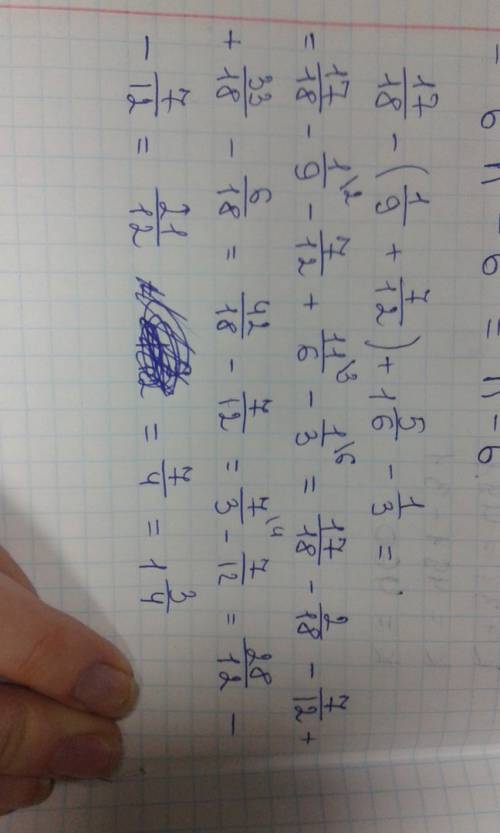 - 6 n - 6 = n - 6
17/18 - (1/9 + 7/12) + 1 5/6 - 1/3 =
= 17/18 - 1\2/9 - 7/12 + 11\3/6 - 1\6/3 = 17/18 - 2/18 - 7/12 +
+ 33/18 - 6/18 = 42/18 - 7/12 = 7\4/3 - 7/12 = 28/12 -
- 7/12 = 21/12 = 7/4 = 1 3/4